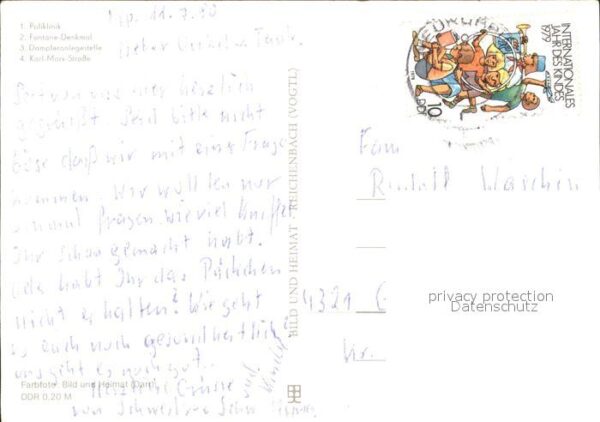 1. Poliklinik
2. Fontane-Denkmal
3. Dampferanlegestelle
4. Karl-Marx-Straße
11.7.80
Lieber Onkel u. Tante.
herzlich
gegrüßt. Seid bitte nicht
böse daß wir mit einer Frage
kommen. Wir wollten nur
einmal fragen wieviel
Ihr schon gemacht habt.
Oder habt Ihr das Päckchen
nicht erhalten? Wie geht
es euch noch gesundheitlich?
uns geht es noch gut.
Herzliche Grüße
von Schwester
und Kinder
Farbfoto: Bild und Heimat (Darr)
DDR 0,20 M
BILD UND HEIMAT · REICHENBACH (VOGTL)
INTERNATIONALES
JAHR DES KINDES
1979
10
DDR
NEURUPPIN
Fam
Rudolf
4321
Nr.
privacy protection
Datenschutz